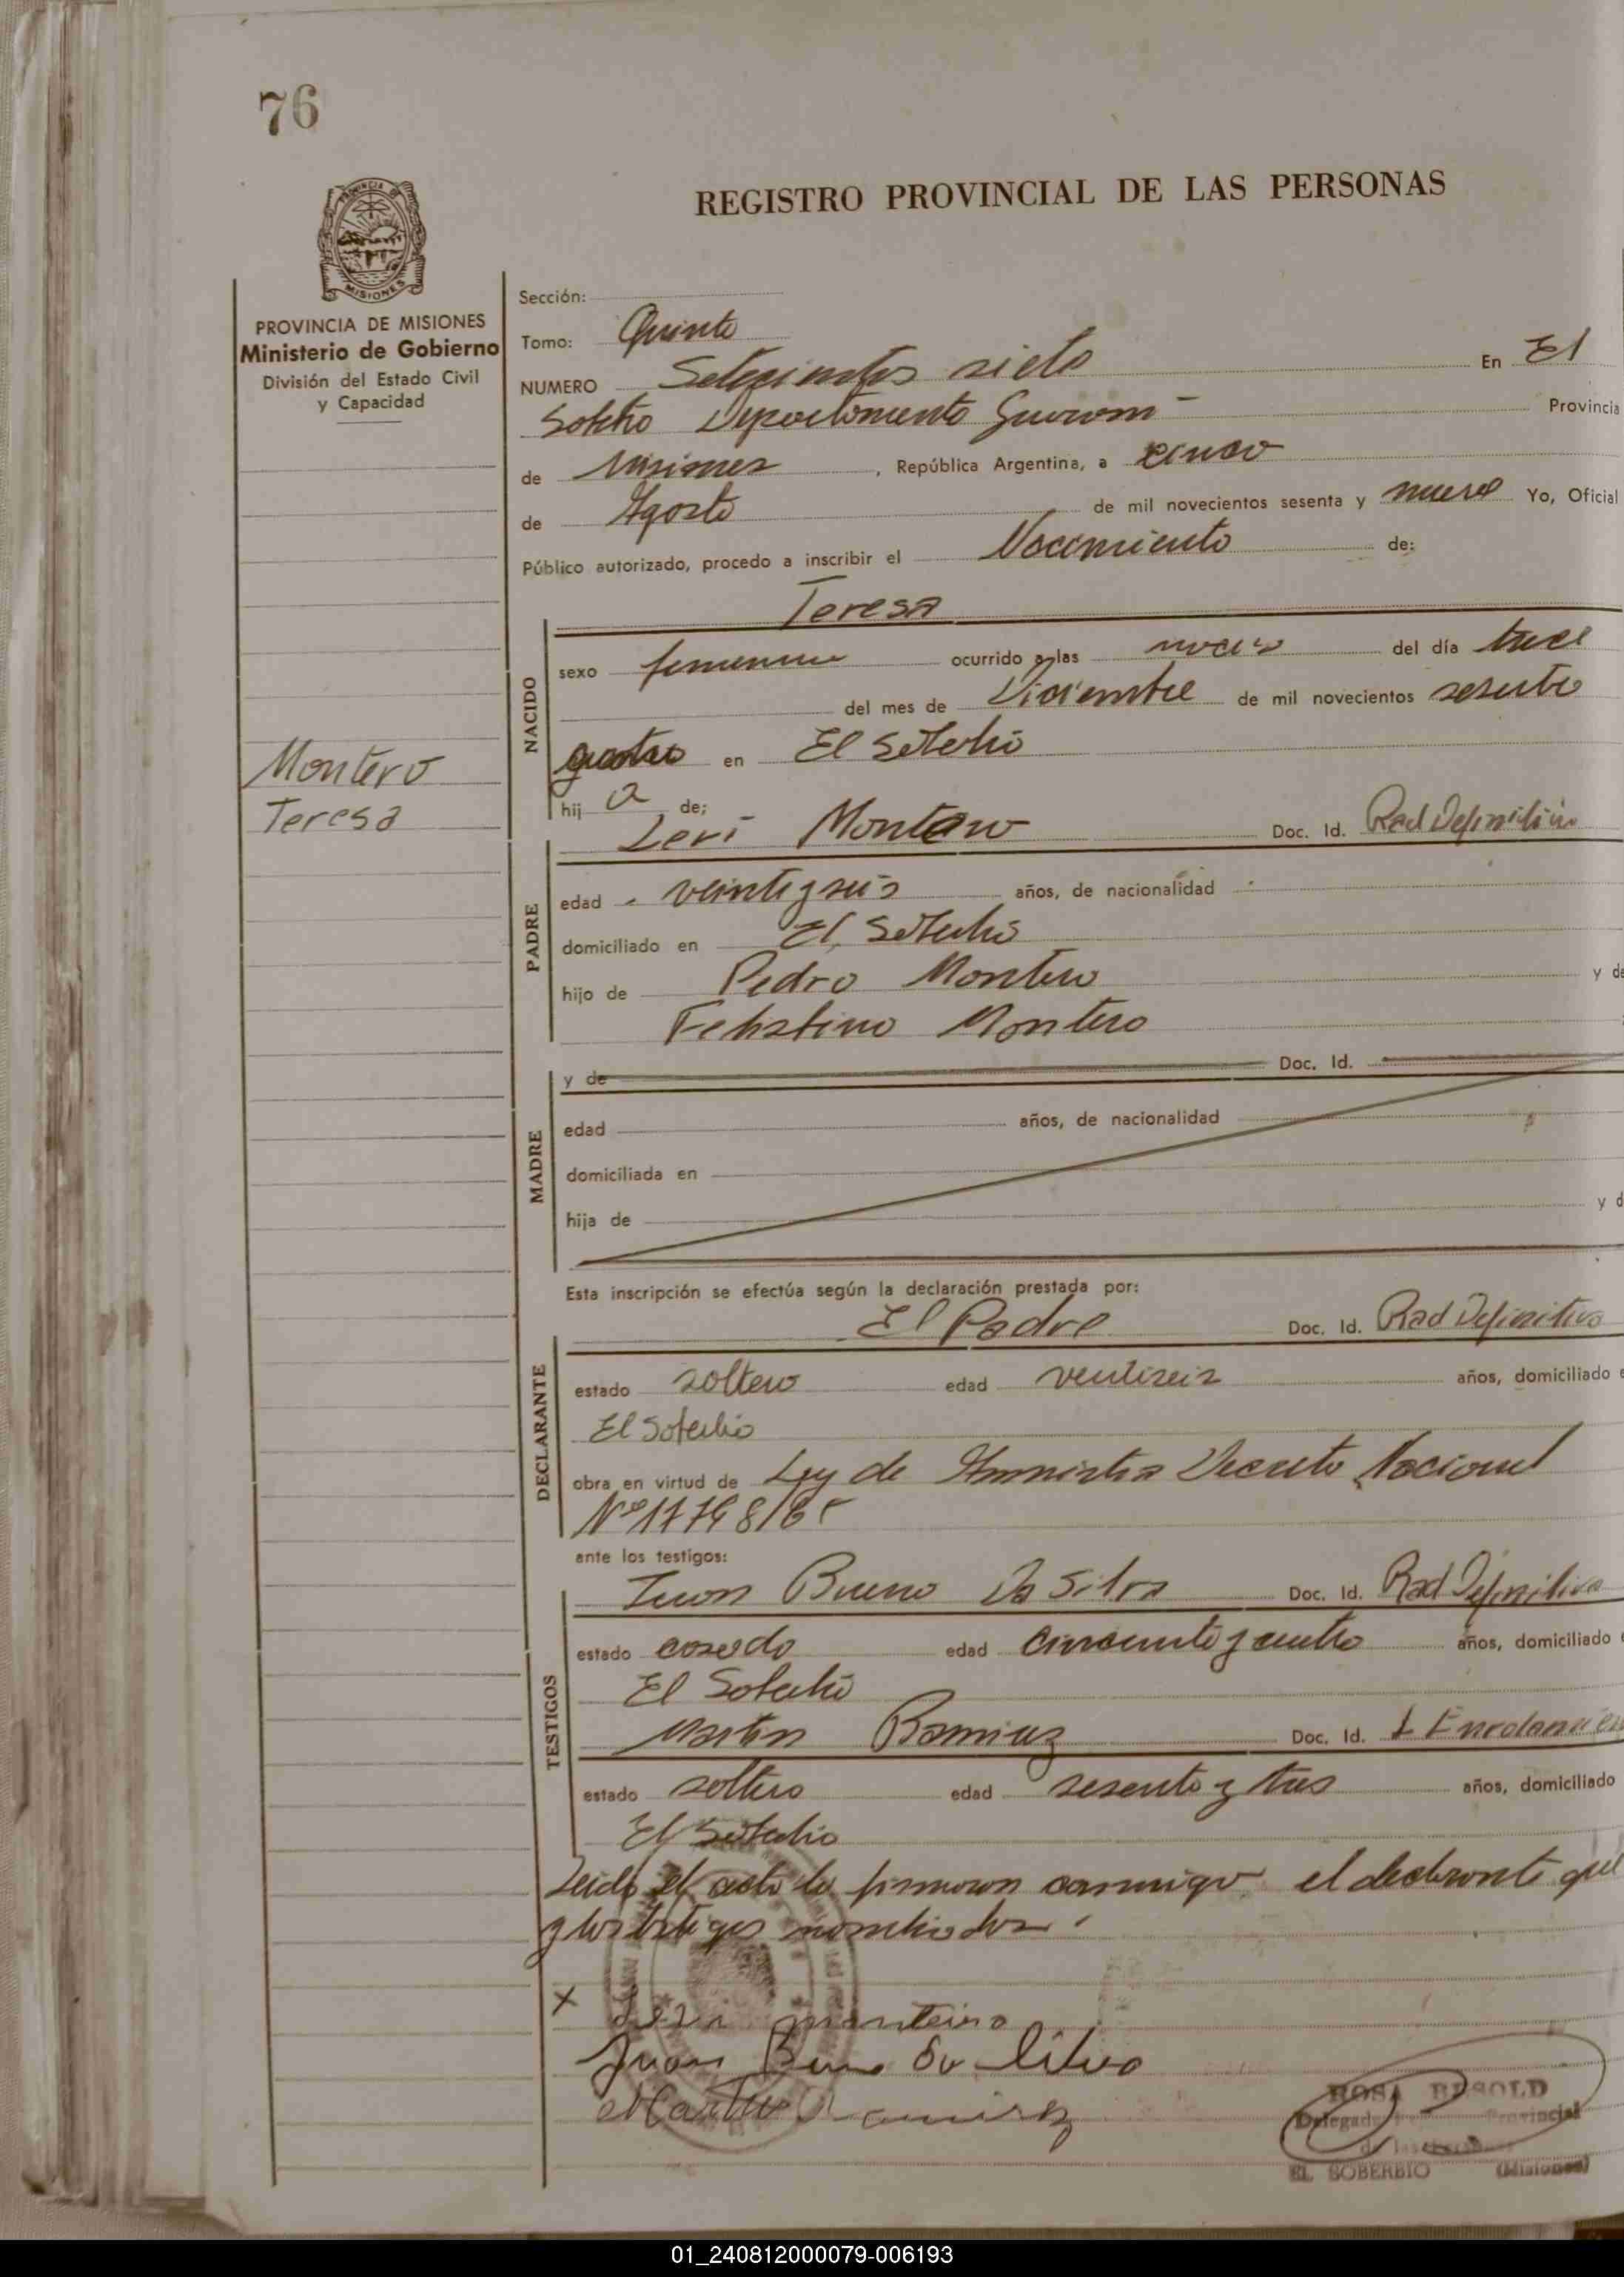 76
REGISTRO PROVINCIAL DE LAS PERSONAS
PROVINCIA DE
MISIONES
PROVINCIA DE MISIONES
Ministerio de Gobierno
División del Estado Civil
y Capacidad
Montero
Teresa
Sección:
Tomo: Quinto
NUMERO Setecientos siete En El
Soberbio Departamento Guarani Provincia
de Misiones, República Argentina, a cinco
de Agosto de mil novecientos sesenta y nueve Yo, Oficial
Público autorizado, procedo a inscribir el Nacimiento de:
Teresa
NACIDO
sexo femenino ocurrido a las nueve del día trece
del mes de Diciembre de mil novecientos sesenta
cuatro en El Soberbio
hij a de;
Levi Montero Doc. Id. Rad Definitiva
PADRE
edad veinte y seis años, de nacionalidad
domiciliado en El Soberbio
hijo de Pedro Montero y de
Montero
MADRE
y de Doc. Id.
edad años, de nacionalidad
domiciliada en
hija de y d
Esta inscripción se efectúa según la declaración prestada por:
El Padre Doc. Id. Rad Definitiva
DECLARANTE
estado soltero edad veintiseis años, domiciliado e
El Soberbio
obra en virtud de Ley de Amnistia Decreto Nacional
Nº
ante los testigos:
Juan Bueno Da Silva Doc. Id. Rad Definitiva
TESTIGOS
estado casado edad cincuenta y cuatro años, domiciliado
El Soberbio
Martin Ramirez Doc. Id. L Enrolamien
estado soltero edad sesenta y tres años, domiciliado
El Soberbio
Leida el acta la firmaron conmigo el declarante que
y los testigos nombrados.
x Levi monteiro
Juan Bueno da Silva
Martin Ramirez
ROSA BESOLD
Delegada Provincial
de las
EL SOBERBIO (Misiones)
01_240812000079-006193